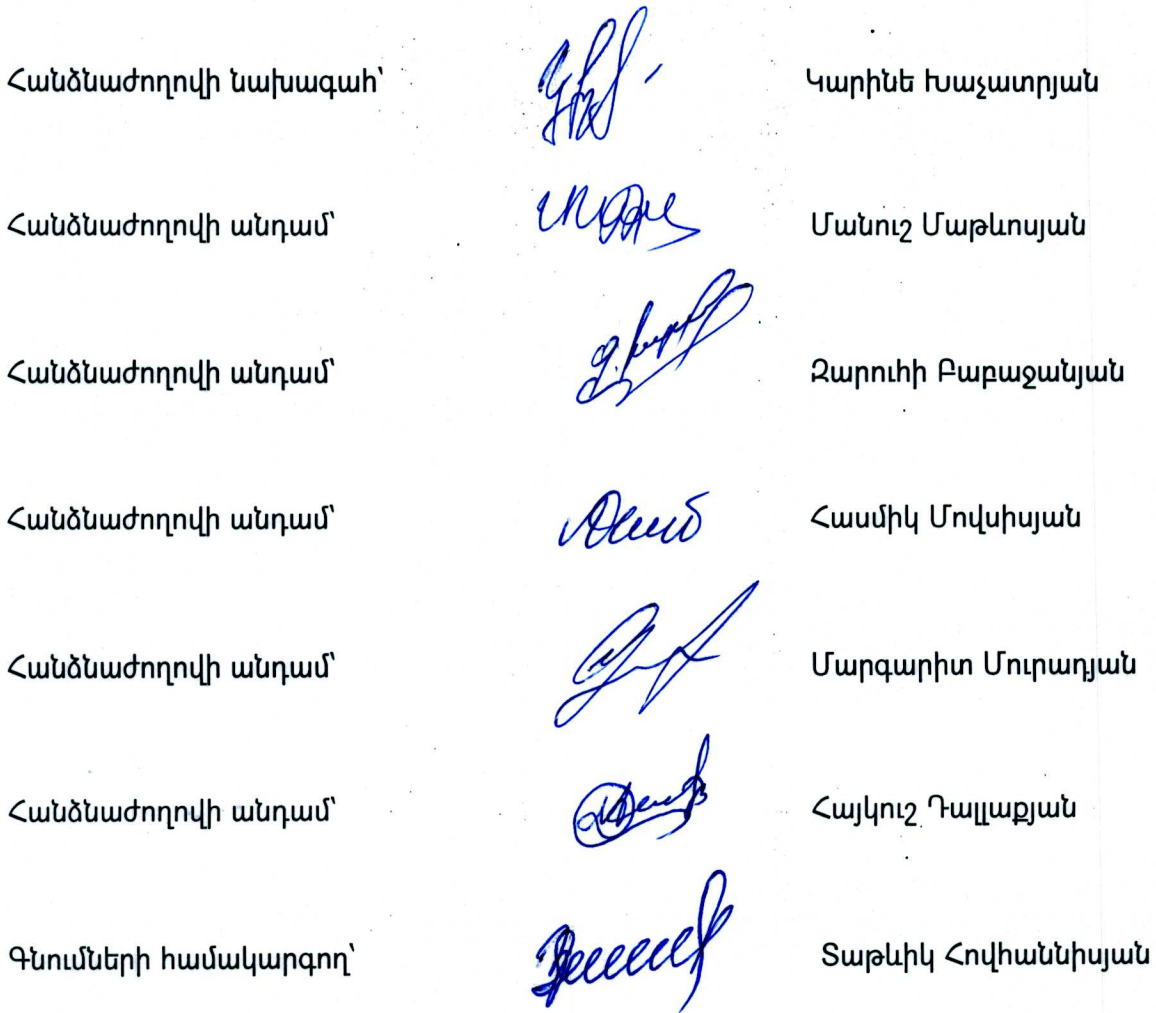 Հանձնաժողովի նախագահ՝ Կարինե Խաչատրյան
Հանձնաժողովի անդամ՝ Մանուշ Մաթևոսյան
Հանձնաժողովի անդամ՝ Զարուհի Բաբաջանյան
Հանձնաժողովի անդամ՝ Հասմիկ Մովսիսյան
Հանձնաժողովի անդամ՝ Մարգարիտ Մուրադյան
Հանձնաժողովի անդամ՝ Հայկուշ Դալլաքյան
Գնումների համակարգող՝ Տաթևիկ Հովհաննիսյան